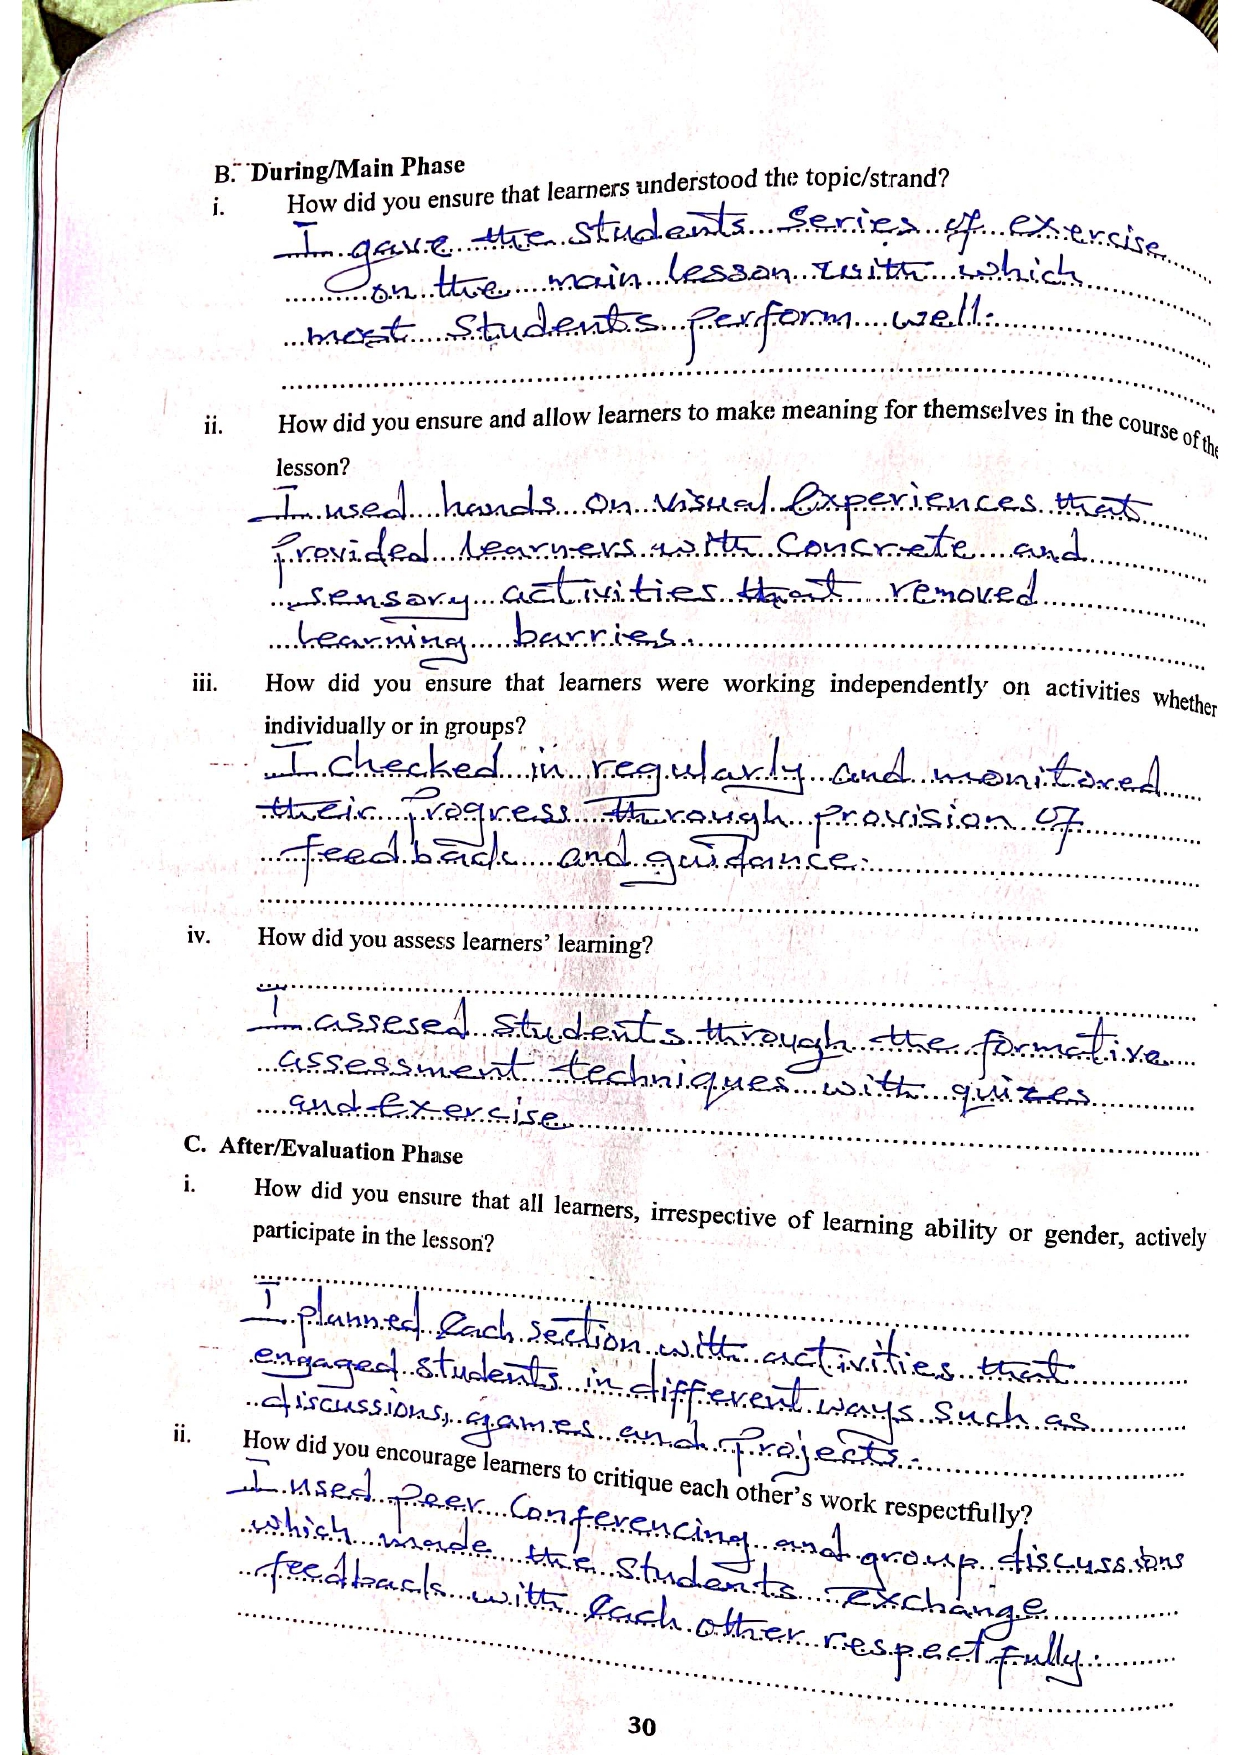 B. During/Main Phase
i. How did you ensure that learners understood the topic/strand?
I gave the students series of exercise
on the main lesson with which
most students perform well.
ii. How did you ensure and allow learners to make meaning for themselves in the course of the
lesson?
I used hands on visual experiences that
provided learners with concrete and
sensory activities that removed
learning barries.
iii. How did you ensure that learners were working independently on activities whether
individually or in groups?
I checked in regularly and monitored
their progress through provision of
feedback and guidance.
iv. How did you assess learners' learning?
I assesed students through the formative
assessment techniques with quizes
and exercise
C. After/Evaluation Phase
i. How did you ensure that all learners, irrespective of learning ability or gender, actively
participate in the lesson?
I planned each section with activities that
engaged students in different ways such as
discussions, games and projects.
ii. How did you encourage learners to critique each other's work respectfully?
I used peer conferencing and group discussions
which made the students exchange
feedback with each other respectfully.
30